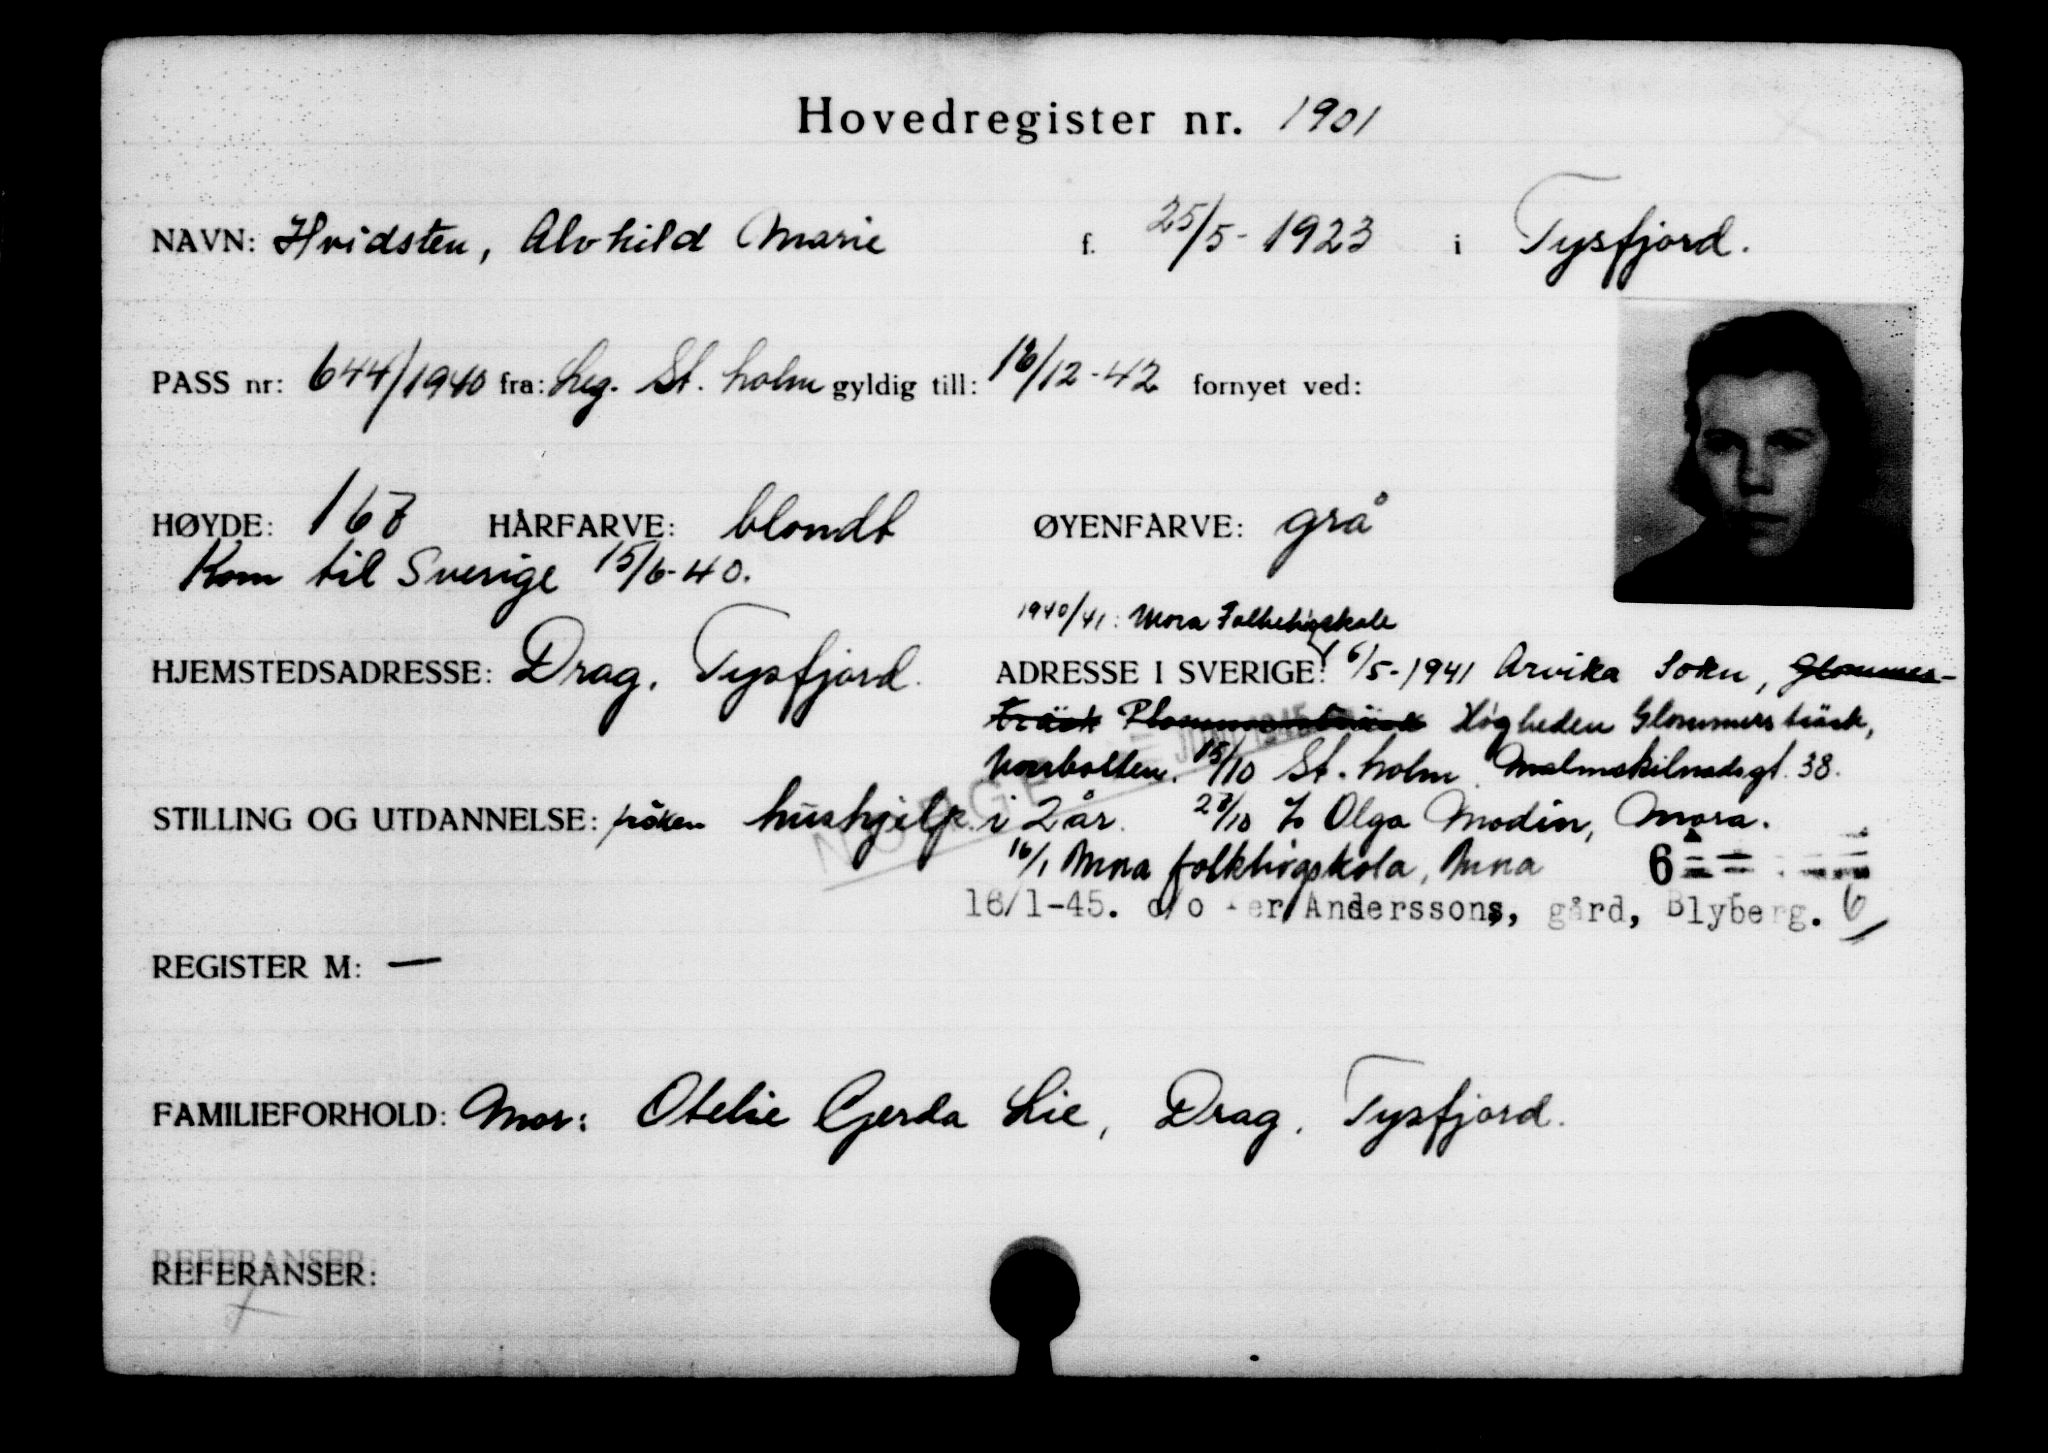 Hovedregister nr. 1901
NAVN: Hvidsten, Alvhild Marie f. 25/5-1923 i Tysfjord.
PASS nr: 644/1940 fra: Leg. St.holm gyldig till: 16/12-42 fornyet ved:
HØYDE: 167 HÅRFARVE: blondt ØYENFARVE: grå
Kom til Sverige 15/6-40.
1940/41: Mora Folkehögskole
HJEMSTEDSADRESSE: Drag, Tysfjord. ADRESSE I SVERIGE: 6/5-1941 Arvika Sokn, Glommers-
träsk Högheden Glommersträsk,
Norrbotten. 15/10 St.holm Malmskilnadsgt. 38.
JUNI 1945
NORGE
STILLING OG UTDANNELSE: fröken hushjelp i 2 år. 27/10 Olga Modin, Mora.
16/1 Mora folkhögskola, Mora 6
16/1-45. c/o Per Anderssons, gård, Blyberg. 6
REGISTER M: —
FAMILIEFORHOLD: Mor: Otelie Gerda Lie, Drag, Tysfjord.
REFERANSER: